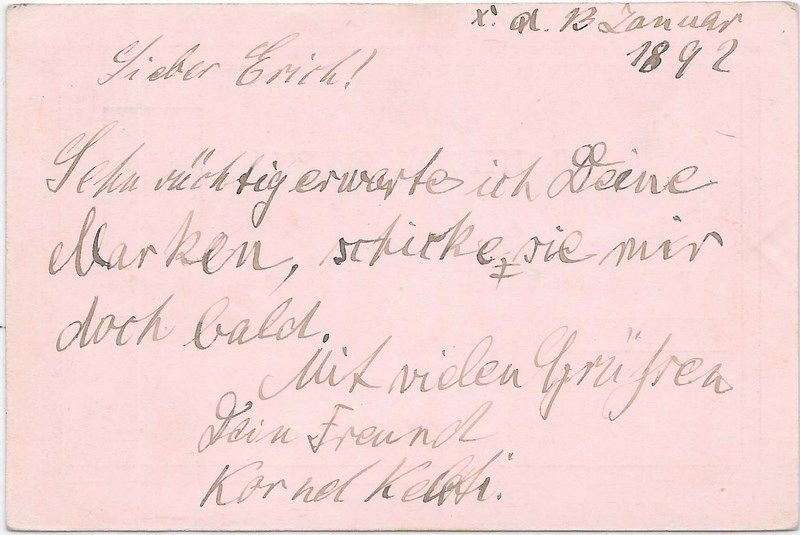 d. 13 Januar
1892
Lieber Erich!
Sehnsüchtig erwarte ich Deine
Marken, schicke sie mir
doch bald.
Mit vielen Grüßen
Dein Freund
Kornel